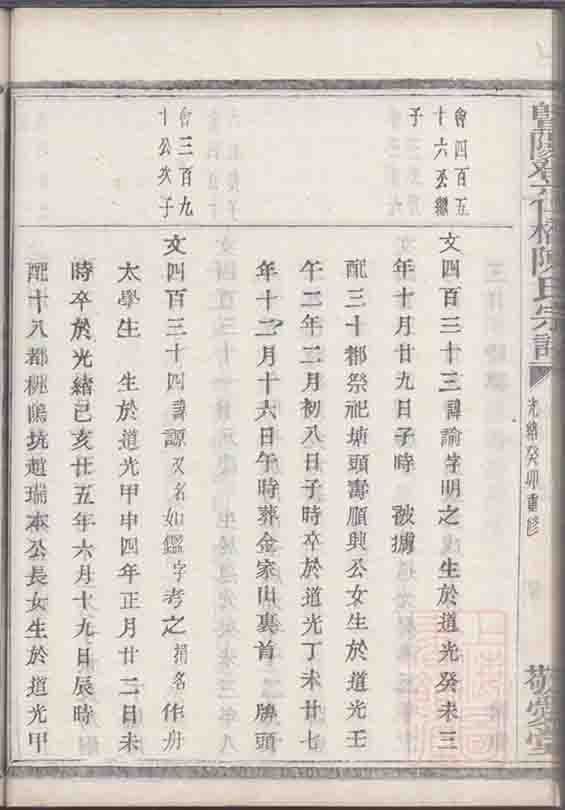 光緒癸卯重修
敬愛堂
會四百五
十六公繼
子
文四百三十三諱諭字明之 生於道光癸未三
年十月廿九日子時 被擄
配三十都祭祀塘頭壽順興公女生於道光壬
午二年二月初八日子時卒於道光丁未廿七
年十二月十六日午時葬金家山裏首 牌頭
會三百九
十公次子
文四百三十四諱謜又名如鑑字考之捐名作舟
太學生 生於道光甲申四年正月廿二日未
時卒於光緒己亥廿五年六月十九日辰時
配十八都桃鴿坑趙瑞本公長女生於道光甲